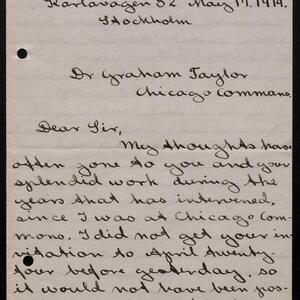 Karlavägen 82 May 17. 1919.
Stockholm
Dr Graham Taylor
Chicago Commons
Dear Sir,
My thoughts have
often gone to you and your
splendid work during the
years that has intervened,
since I was at Chicago Com-
mons. I did not get your in-
vitation to April twenty
four before yesterday, so
it would not have been pos-